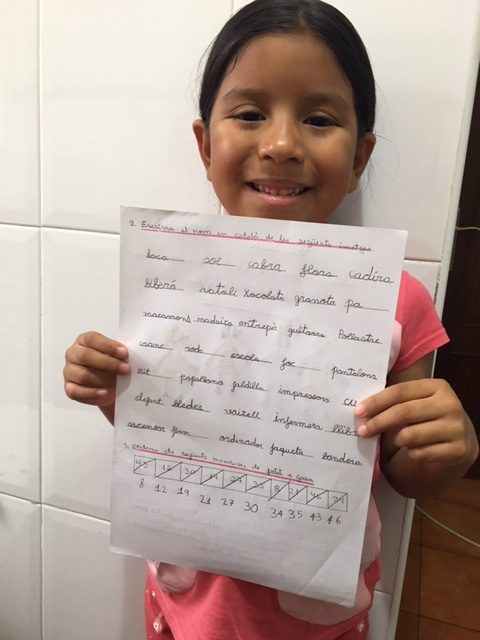 2. Escriviu el nom en català de les següents imatges
boca sol cabra flors cadira
biberó natali xocolata granota pa
macarrons maduixa entrepà guitarra Pollastre
cranc roda escola foc pantalons
llit papallona faldilla impressora cu
elefant bledes vaixell infermera llibre
ascensor flam ordinador jaqueta bandera
3. Ordena els següents nombres de petit a gran
43 12 30 19 27 35 8 21 46 34
8 12 19 21 27 30 34 35 43 46